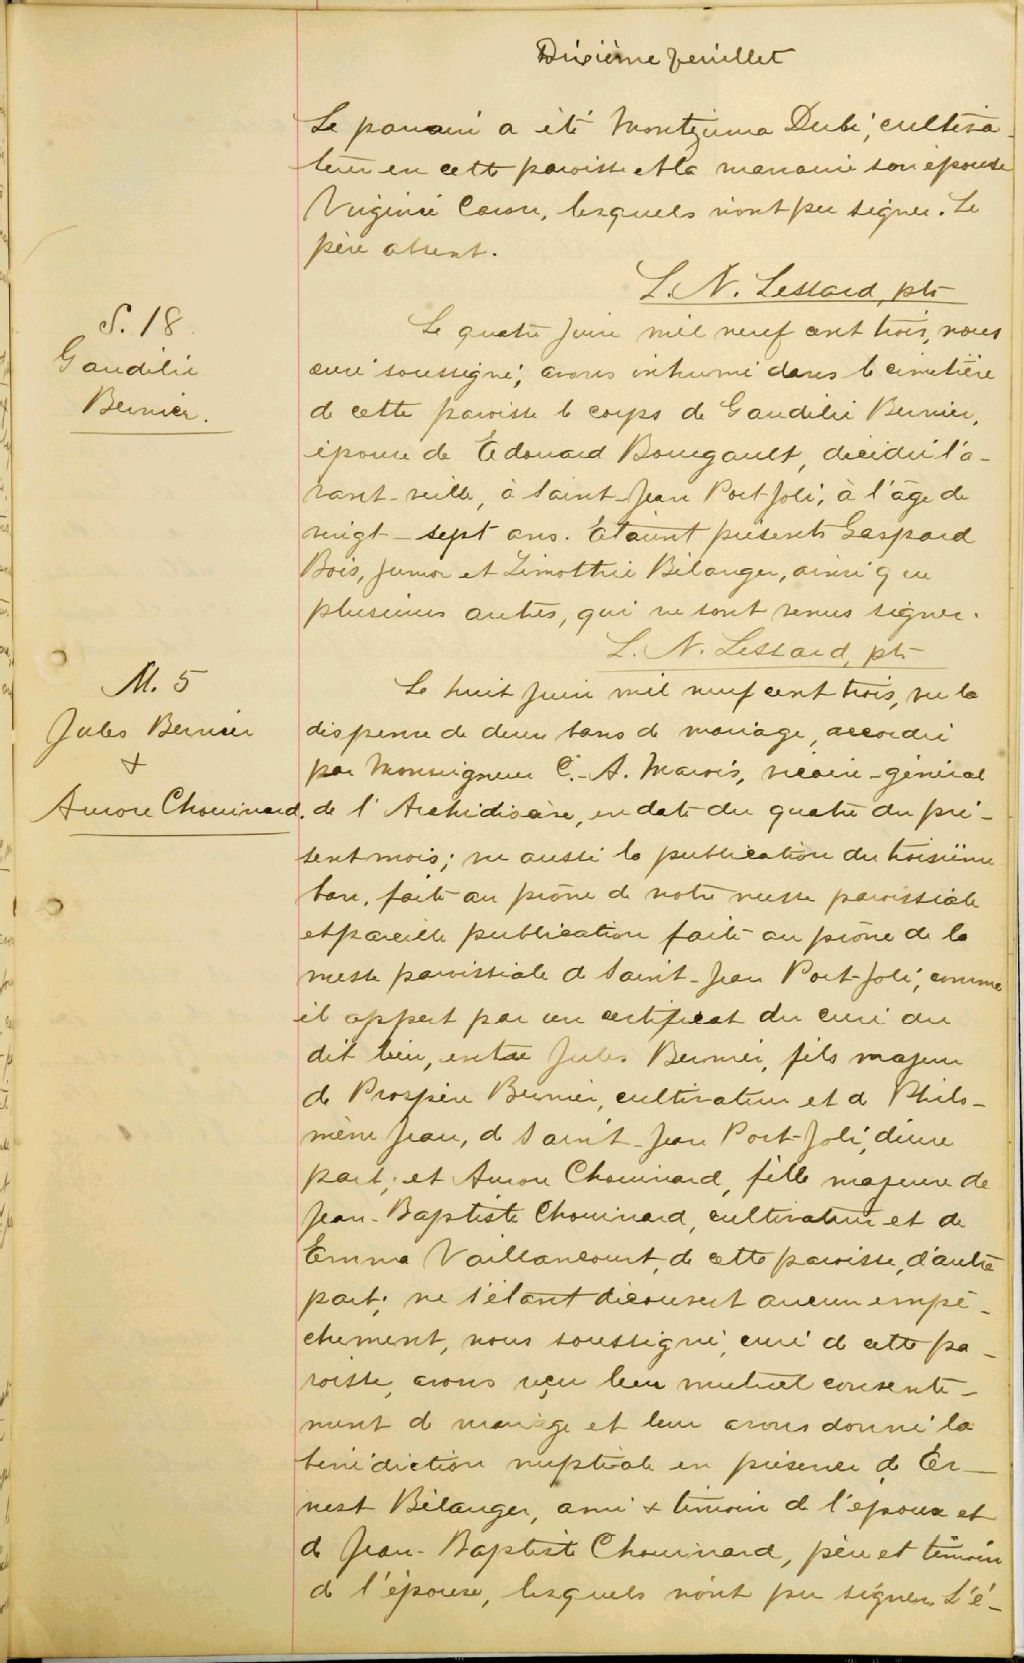 Dixième feuillet
Le parrain a été Montezuma Dubé, cultiva-
teur en cette paroisse et la marraine son épouse
Virginie Caron, lesquels n'ont pu signer. Le
père absent.
L. N. Lessard, ptr
S. 18
Gaudélie
Bernier.
Le quatre juin mil neuf cent trois, nous
curé soussigné, avons inhumé dans le cimetière
de cette paroisse le corps de Gaudélie Bernier,
épouse de Edouard Bourgault, décédée l'a-
vant-veille, à Saint-Jean Port-Joli, à l'âge de
vingt-sept ans. Etaient présents Gaspard
Bois, junior et Timothée Bélanger, ainsi que
plusieurs autres, qui ne sont venus signer.
L. N. Lessard, ptr
M. 5
Jules Bernier
+
Aurore Chouinard.
Le huit juin mil neuf cent trois, vu la
dispense de deux bans de mariage, accordée
par Monseigneur C.-A. Marois, vicaire-général
de l'Archidiocèse, en date du quatre du pré-
sent mois; vu aussi la publication du troisième
ban, faite au prône de notre messe paroissiale
et pareille publication faite au prône de la
messe paroissiale de Saint-Jean Port-Joli, comme
il appert par un certificat du curé du
dit lieu, entre Jules Bernier, fils majeur
de Prospère Bernier, cultivateur et de Philo-
mène Jean, de Saint-Jean Port-Joli, d'une
part; et Aurore Chouinard, fille majeure de
Jean-Baptiste Chouinard, cultivateur et de
Emma Vaillancourt, de cette paroisse, d'autre
part; ne s'étant découvert aucun empê-
chement, nous soussigné, curé de cette pa-
roisse, avons reçu leur mutuel consente-
ment de mariage et leur avons donné la
bénédiction nuptiale en présence de Er-
nest Bélanger, ami & témoin de l'époux et
de Jean-Baptiste Chouinard, père et témoin
de l'épouse, lesquels n'ont pu signer. L'é-